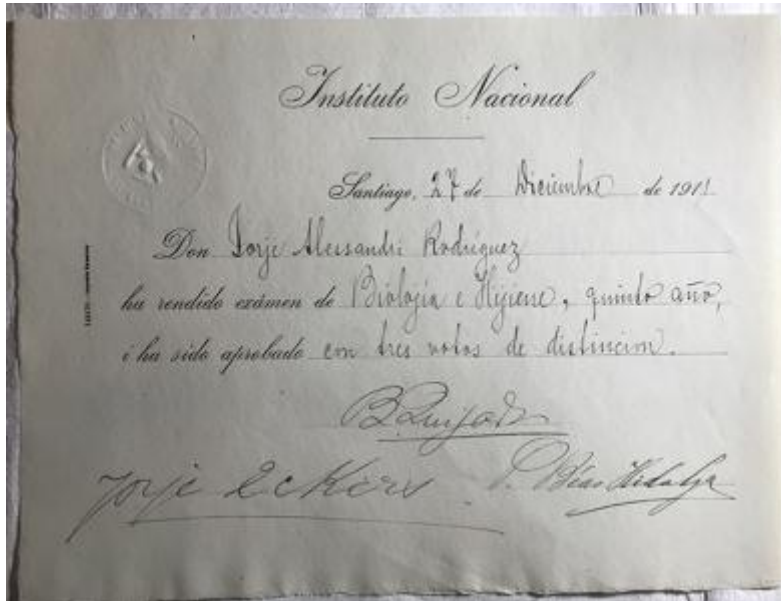 Instituto Nacional
Santiago, 27 de Diciembre de 1911
Don Jorje Alessandri Rodríguez
ha rendido exámen de Biolojía e Hijiene, quinto año,
i ha sido aprobado con tres votos de distincion.
B. Quijada
Jorje Eckers
Díaz Hidalgo